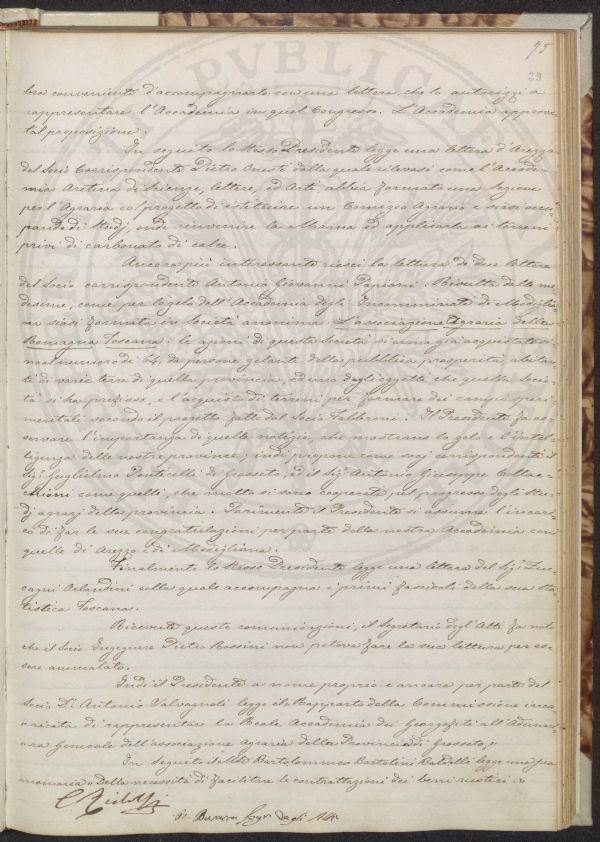 75
39
bra conveniente d'accompagnarlo con una lettera, che lo autorizzi a
rappresentare l'Accademia in quel Congresso. L'Accademia approva
tal proposizione.
In seguito lo stesso Presidente legge una lettera d'Arezzo
del Socio Corrispondente Pietro Onesti dalla quale rilevasi come l'Accade-
mia Aretina di Scienze, lettere, ed Arti abbia formato una sezione
per l'Agraria col progetto di istituire un Comizio Agrario e siasi occu-
pando di studj, onde rinvenire la Marna ed applicarla ai terreni
privi di carbonato di calce.
Ancora più interessante riescì la lettura di due lettere
del Socio corrispondente Antonio Giovanni Papiani. Risulta dalle me-
desime, come per lo zelo dell'Accademia degli Incamminati di Modiglia-
na siasi formata in Società anonima L'associazione Agraria della
Romagna Toscana. le azioni di questa Società si son già acquistate
numero di 64 da persone zelanti della pubblica prosperità, abitan-
ti di varie terre di quella provincia, ed uno degli oggetti che quella Socie-
tà si ha prefisso, è l'acquisto di terreni per formare dei campi speri-
mentali secondo il progetto fatto dal Socio Fabbroni. Il Presidente fa os-
servare l'importanza di quelle notizie, che mostrano lo zelo e l'intel-
ligenza delle nostre province; indi propone come socj corrispondenti il
Sig. Guglielmo Ponticelli di Grosseto, ed il Sig. Antonio Giuseppe
come quelli, che molto si sono cooperati pel progresso degli Stu-
dj agrarj della provincia. Parimente il Presidente si assume l'incari-
co di far le sue congratulazioni per parte della nostra Accademia con
quelle di Arezzo e di Modigliana.
Finalmente lo stesso Presidente legge una lettera del Sig. Zuc-
cagni Orlandini colla quale accompagna i primi fascicoli della sua sta-
tistica Toscana.
Ricevute queste comunicazioni, il Segretario degl'Atti fa noto
che il Socio Ingegnere Pietro Rossini non poteva fare la sua lettura per es-
sere ammalato.
Indi il Presidente a nome proprio e ancora per parte del
Socio D. Antonio Salvagnoli legge il Rapporto della Commissione inca-
"ricata di rappresentare la Reale Accademia dei Georgofili all'Adunan-
"za Generale dell'associazione agraria della Provincia di Grosseto,"
In seguito il Socio Bartolommeo Bartolini Baldelli legge una sua
memoria "Della necessità di facilitare le contrattazioni dei beni rustici."
C Ridolfi
Segr. degli Atti